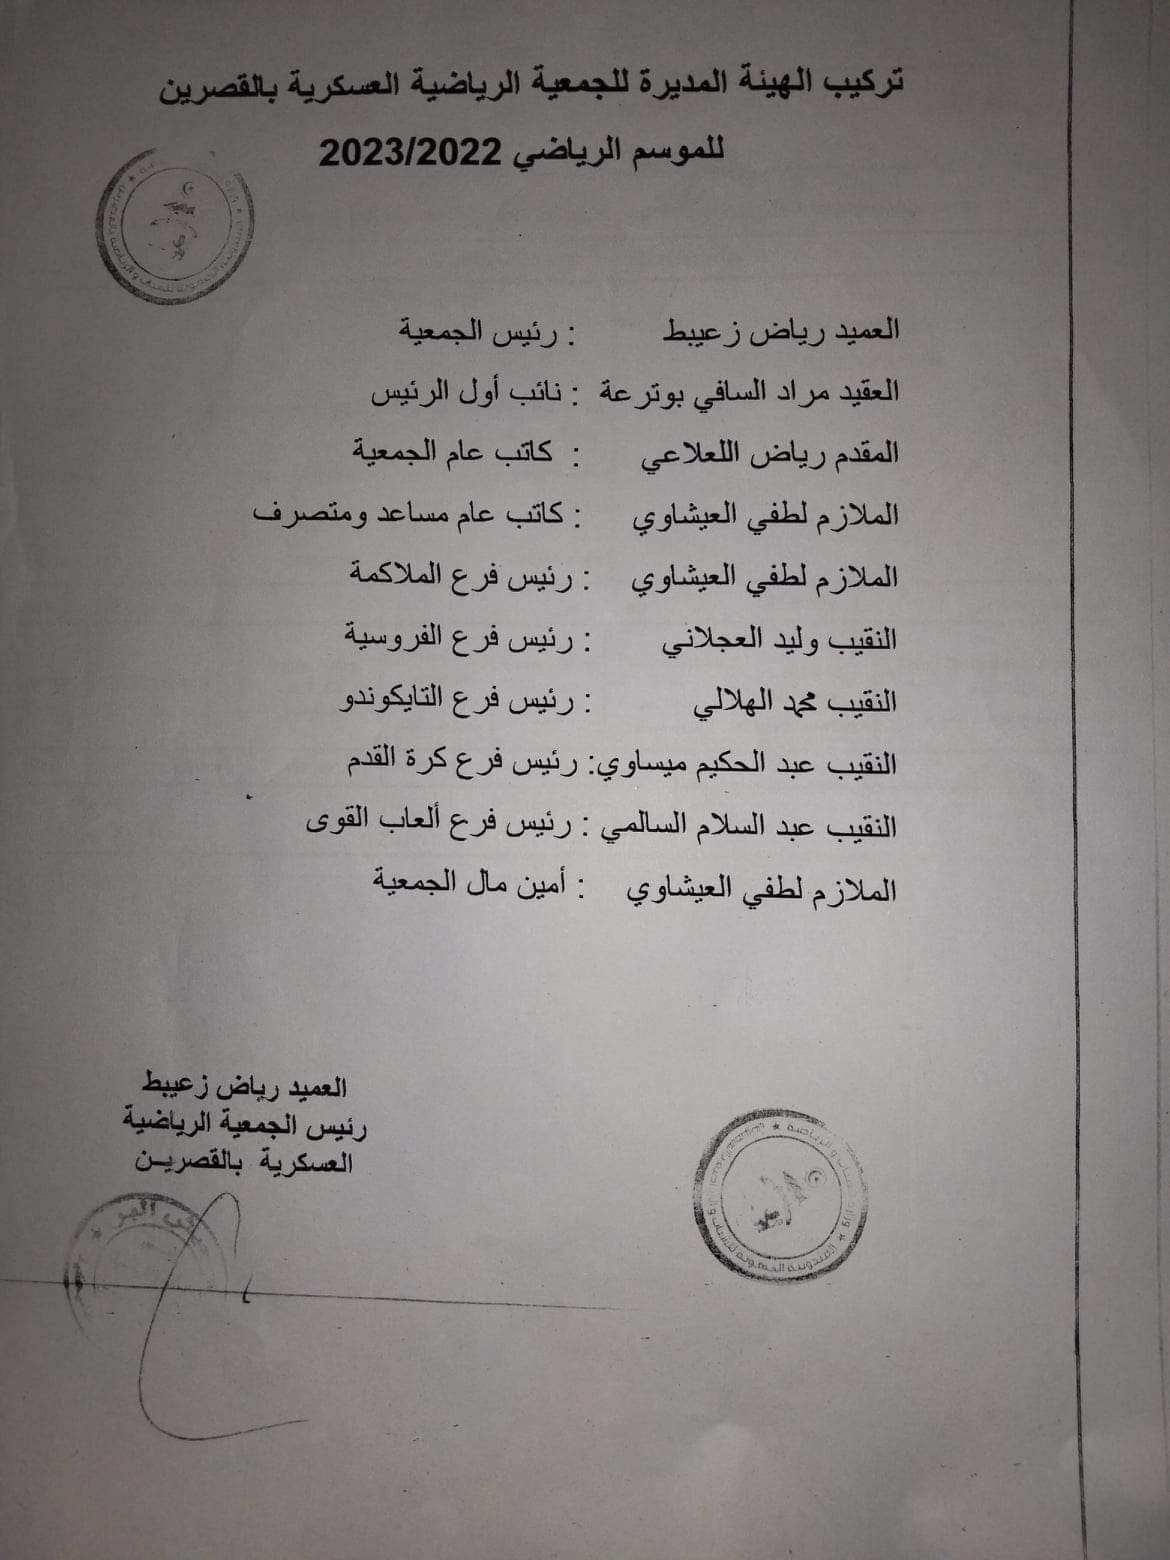 تركيب الهيئة المديرة للجمعية الرياضية العسكرية بالقصرين
للموسم الرياضي 2023/2022
العميد رياض زعيبط : رئيس الجمعية
العقيد مراد السافي بوترعة : نائب أول الرئيس
المقدم رياض اللعلاعي : كاتب عام الجمعية
الملازم لطفي العيشاوي : كاتب عام مساعد ومتصرف
الملازم لطفي العيشاوي : رئيس فرع الملاكمة
النقيب وليد العجلاني : رئيس فرع الفروسية
النقيب محمد الهلالي : رئيس فرع التايكوندو
النقيب عبد الحكيم ميساوي: رئيس فرع كرة القدم
النقيب عبد السلام السالمي : رئيس فرع ألعاب القوى
الملازم لطفي العيشاوي : أمين مال الجمعية
العميد رياض زعيبط
رئيس الجمعية الرياضية
العسكرية بالقصريـن